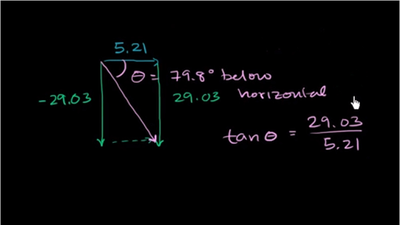 5.21
θ = 79.8° below
-29.03 29.03 horizontal
tan θ = 29.03
5.21